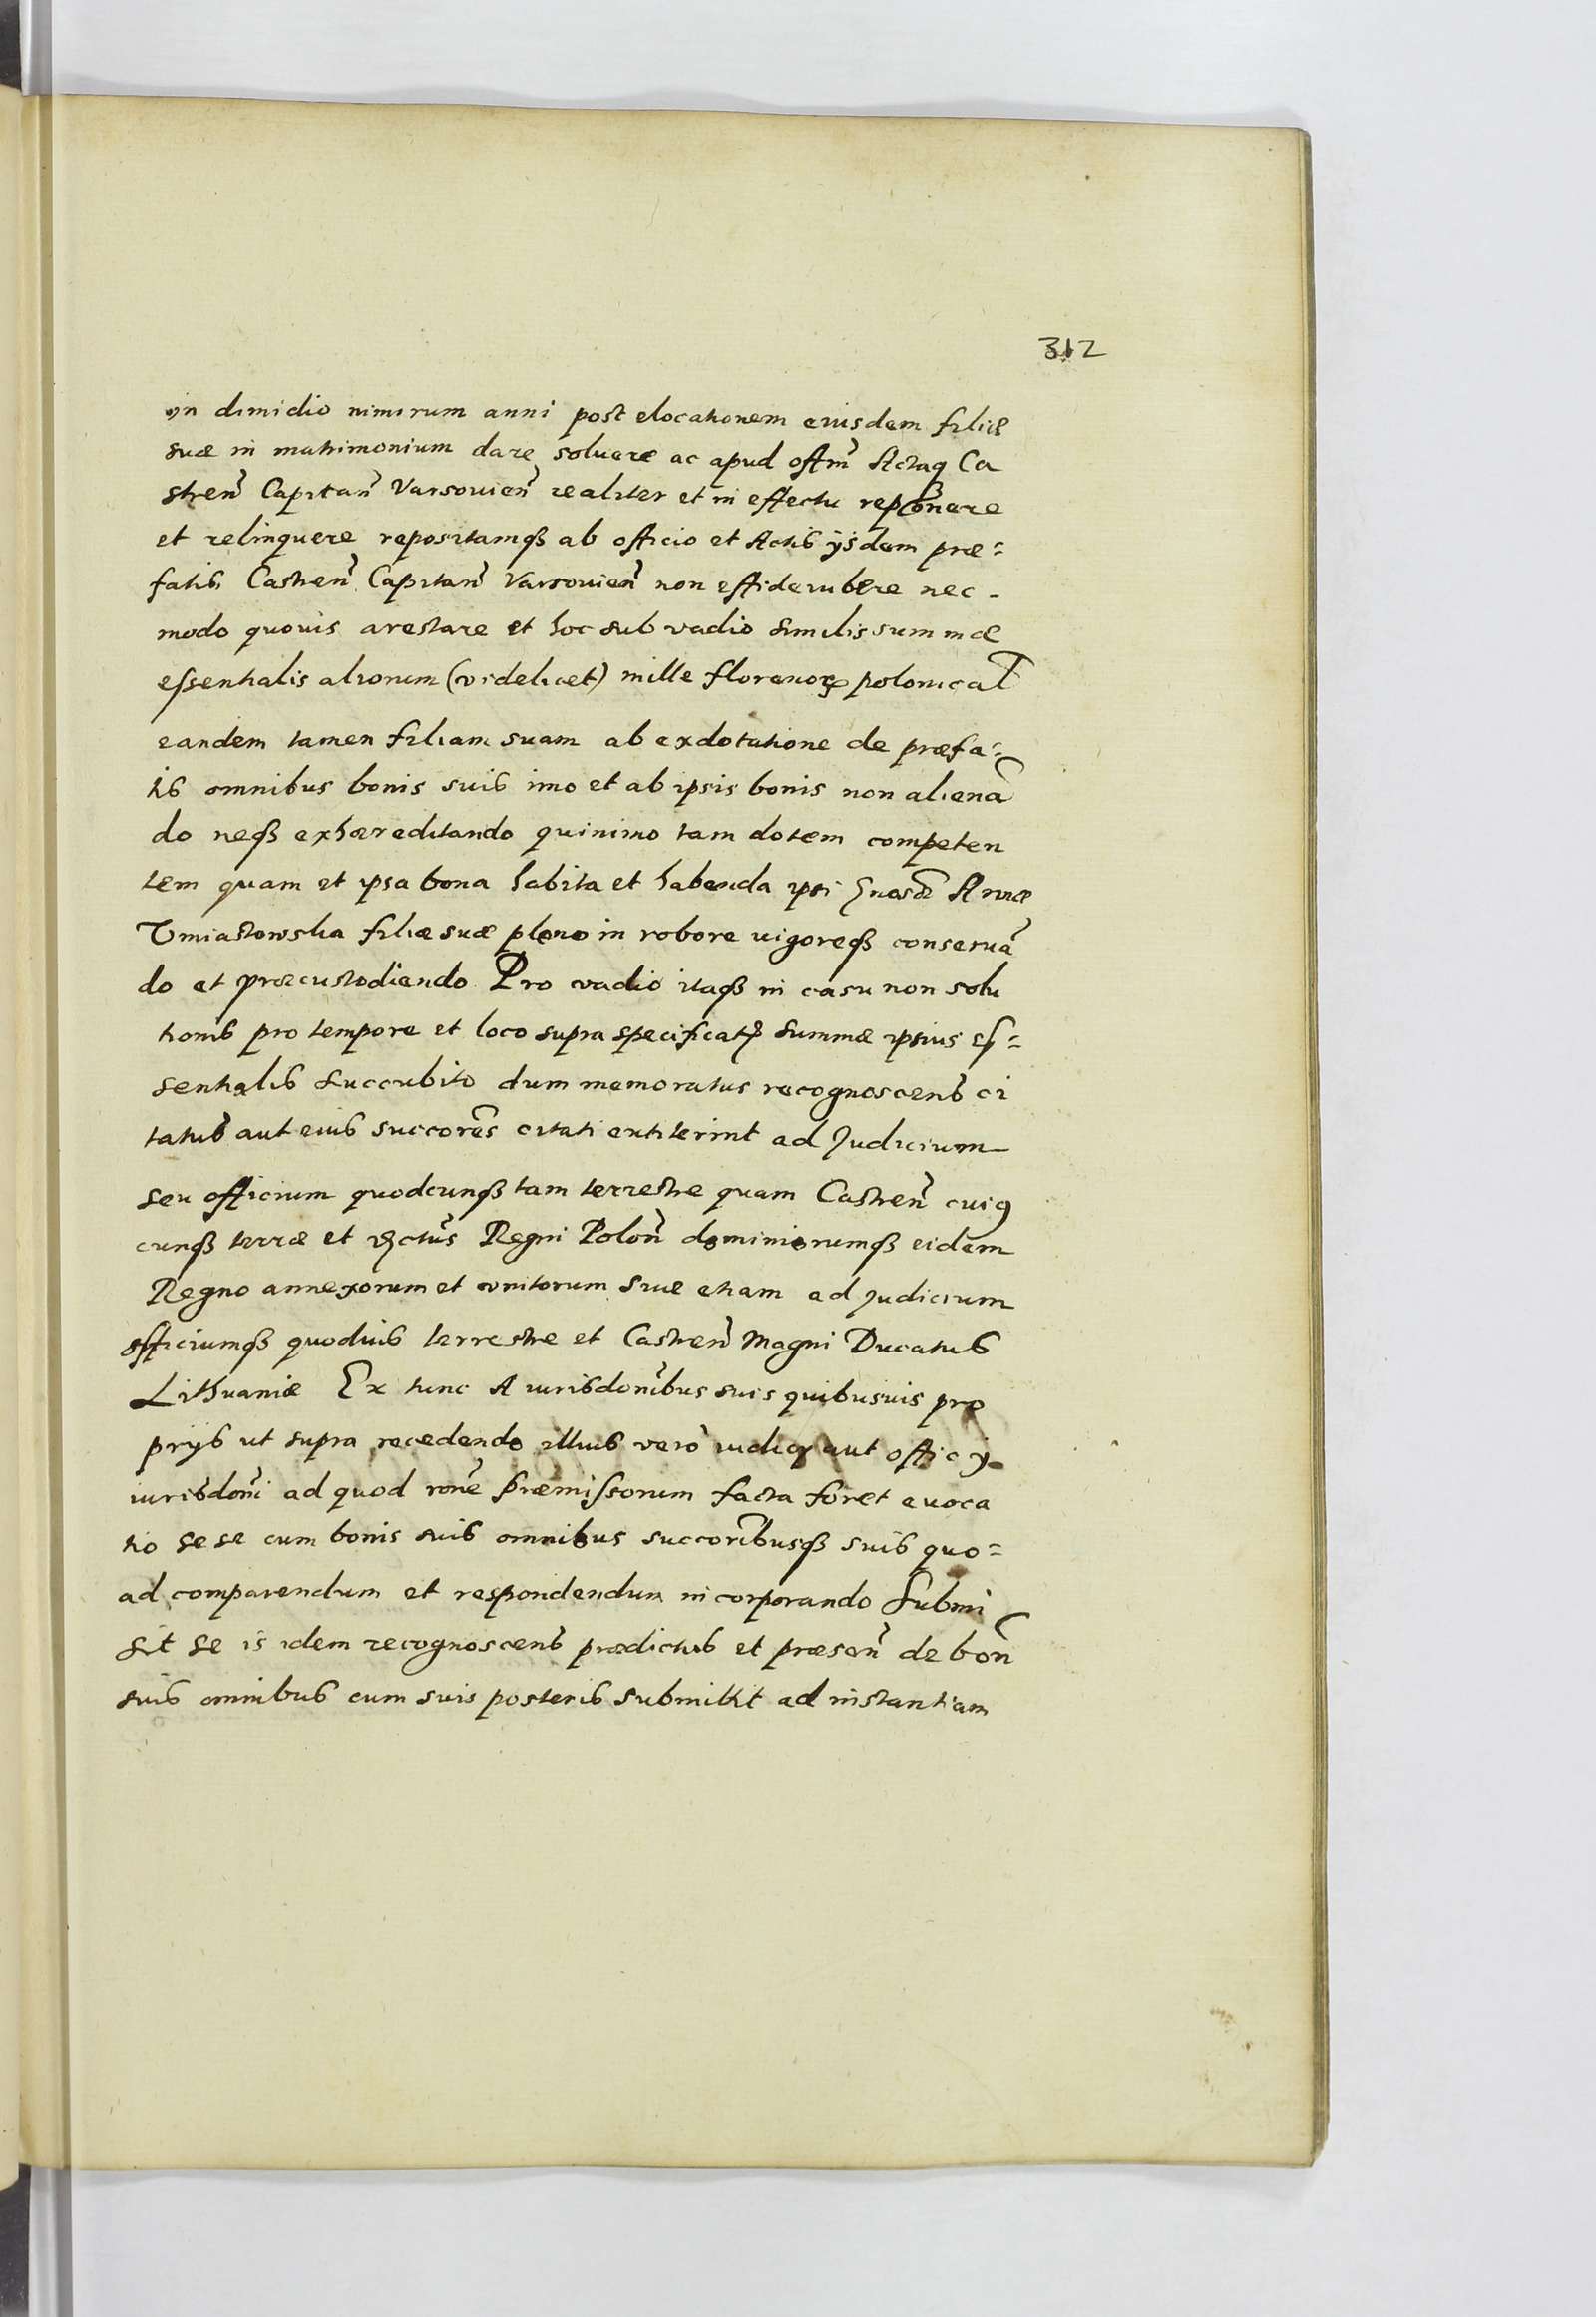 312
in dimidio nimirum anni post elocationem eiusdem filiæ
suæ in matrimonium dare soluere ac apud offm Actaq Ca
stren Capitan Varsouien realiter et in effectu reponere
et relinquere repositamqȝ ab officio et Actis ijsdem præ=
fatis Castren Capitan Varsouien non effide iubere nec
modo quouis arestare et hoc sub vadio similis summæ
essentialis aliorum (videlicet) mille florenorꝝ polonical
eandem tamen filiam suam ab exdotatione de præfa=
tis omnibus bonis suis imo et ab ipsis bonis non alienā
do neqȝ exhæreditando quinimo tam dotem competen
tem quam et ipsa bona habita et habenda ipsi Annæ
Vmiastowska filiæ suæ pleno in robore uigoreqȝ conseruā
do et præcustodiendo Pro vadio itaqȝ in casu non solu
tionis pro tempore et loco supra specificatꝭ summæ ipsius es=
sentialis succubito dum memoratus recognoscens ci
tatus aut eius succores citati extiterint ad Judicium
seu officium quodcunqȝ tam terrestre quam Castren cuiꝯ
cunqȝ terræ et dꝭctus Regni Polon dominiorumqȝ eidem
Regno annexorum et vnitorum siue etiam ad Judicium
officiumqȝ quoduis terrestre et Castren Magni Ducatus
Lithuaniæ Ex tunc A iurisdonibus suis quibusuis pro
prijs ut supra recedendo illius vero iudicij aut officij
iurisdoni ad quod rone præmissorum facta foret euoca
tio se se cum bonis suis omnibus succoribusqȝ suis quo=
ad comparendum et respondendum incorporando Submi
sit se is idem recognoscens prædictus et præsen de bon
suis omnibus cum suis posteris submittit ad instantiam